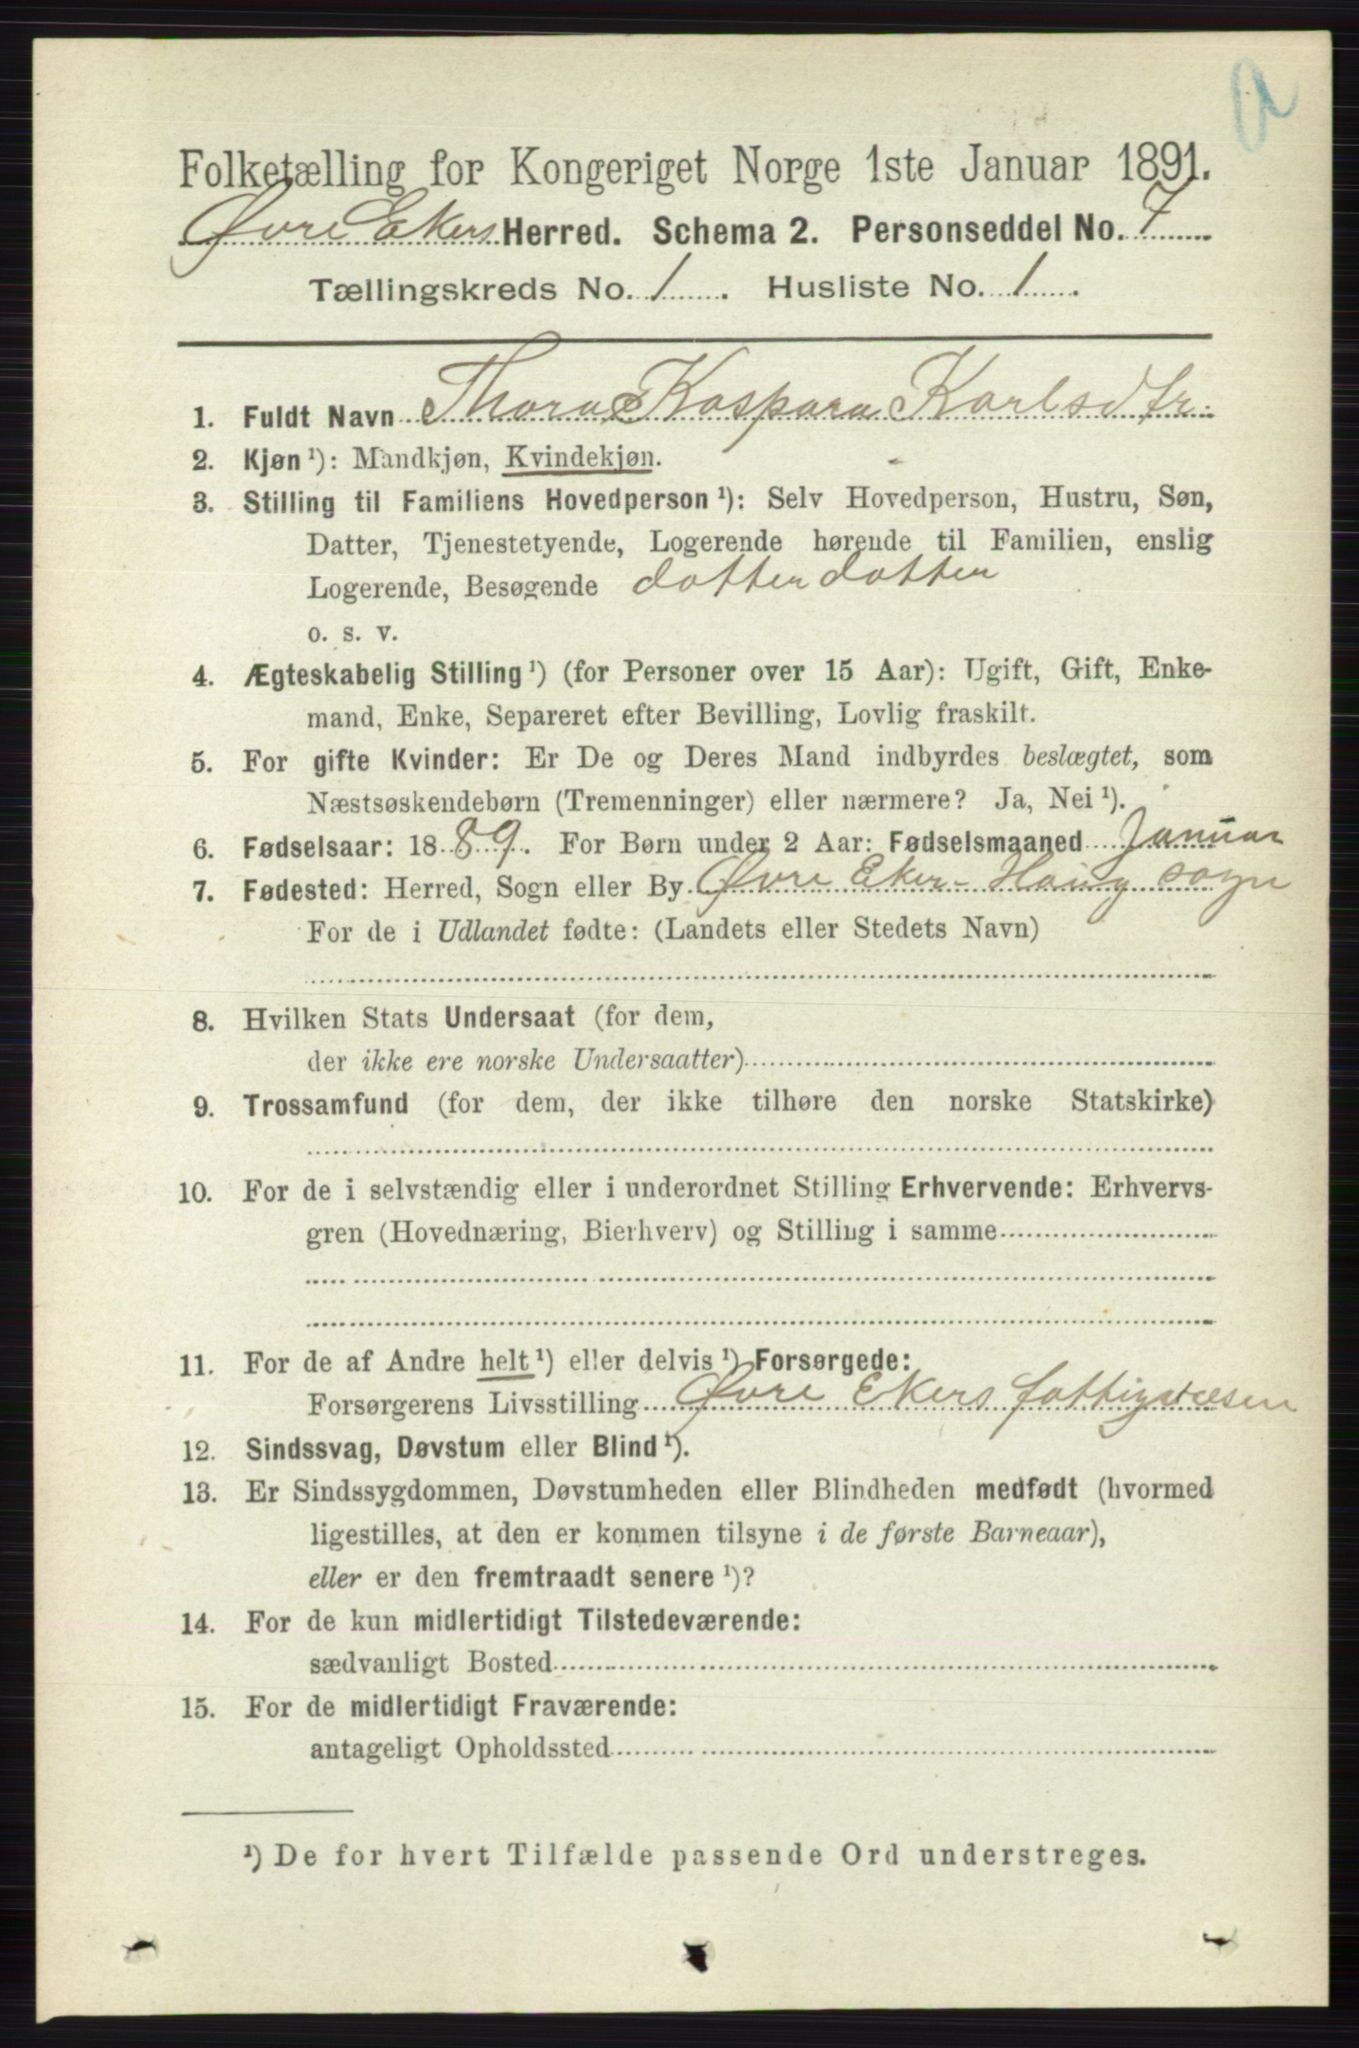 a
Folketælling for Kongeriget Norge 1ste Januar 1891.
Øvre Ekers Herred. Schema 2. Personseddel No. 7
Tællingskreds No. 1. Husliste No. 1.
1. Fuldt Navn Thora Kaspara Karlsdtr.
2. Kjøn ¹): Mandkjøn, Kvindekjøn.
3. Stilling til Familiens Hovedperson ¹): Selv Hovedperson, Hustru, Søn,
Datter, Tjenestetyende, Logerende hørende til Familien, enslig
Logerende, Besøgende datterdatter
o. s. v.
4. Ægteskabelig Stilling ¹) (for Personer over 15 Aar): Ugift, Gift, Enke-
mand, Enke, Separeret efter Bevilling, Lovlig fraskilt.
5. For gifte Kvinder: Er De og Deres Mand indbyrdes beslægtet, som
Næstsøskendebørn (Tremenninger) eller nærmere? Ja, Nei ¹).
6. Fødselsaar: 1889. For Børn under 2 Aar: Fødselsmaaned Januar
7. Fødested: Herred, Sogn eller By Øvre Eker - Haug sogn
For de i Udlandet fødte: (Landets eller Stedets Navn)
8. Hvilken Stats Undersaat (for dem,
der ikke ere norske Undersaatter)
9. Trossamfund (for dem, der ikke tilhøre den norske Statskirke)
10. For de i selvstændig eller i underordnet Stilling Erhvervende: Erhvervs-
gren (Hovednæring, Bierhverv) og Stilling i samme
11. For de af Andre helt ¹) eller delvis ¹) Forsørgede:
Forsørgerens Livsstilling Øvre Ekers fattigvæsen
12. Sindssvag, Døvstum eller Blind ¹).
13. Er Sindssygdommen, Døvstumheden eller Blindheden medfødt (hvormed
ligestilles, at den er kommen tilsyne i de første Barneaar),
eller er den fremtraadt senere ¹)?
14. For de kun midlertidigt Tilstedeværende:
sædvanligt Bosted
15. For de midlertidigt Fraværende:
antageligt Opholdssted
¹) De for hvert Tilfælde passende Ord understreges.